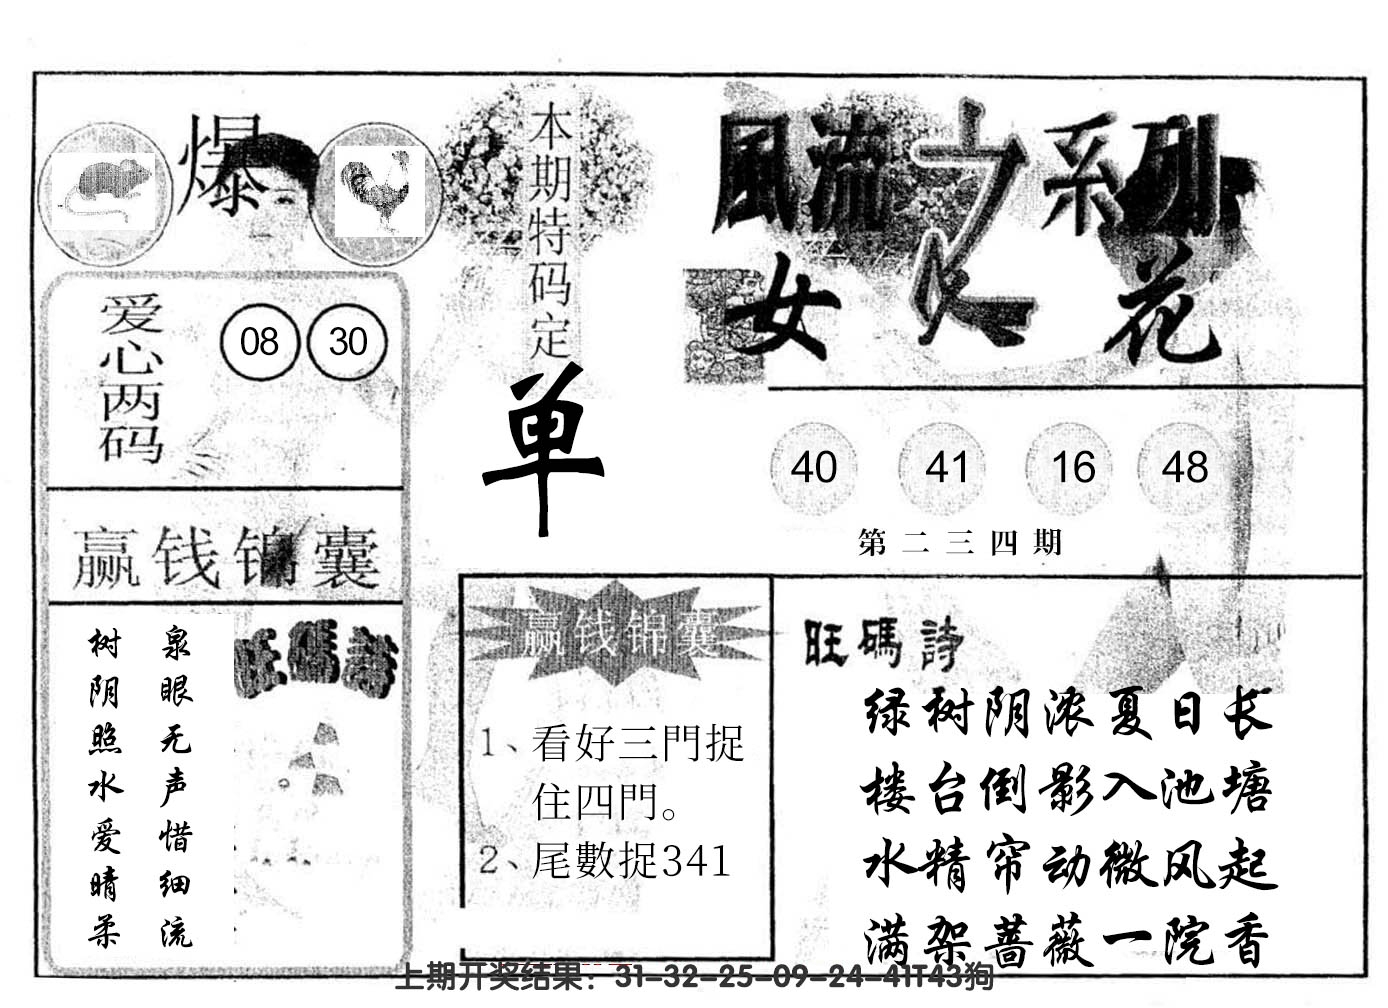 爆
爱心两码
08 30
赢钱锦囊
泉眼无声惜细流
树阴照水爱晴柔
旺碼詩
本期特码定
单
赢钱锦囊
1、看好三門捉
住四門。
2、尾數捉341
風流之系列
女人花
40 41 16 48
第二三四期
旺碼詩
绿树阴浓夏日长
楼台倒影入池塘
水精帘动微风起
满架蔷薇一院香
上期开奖结果：31-32-25-09-24-41T43狗